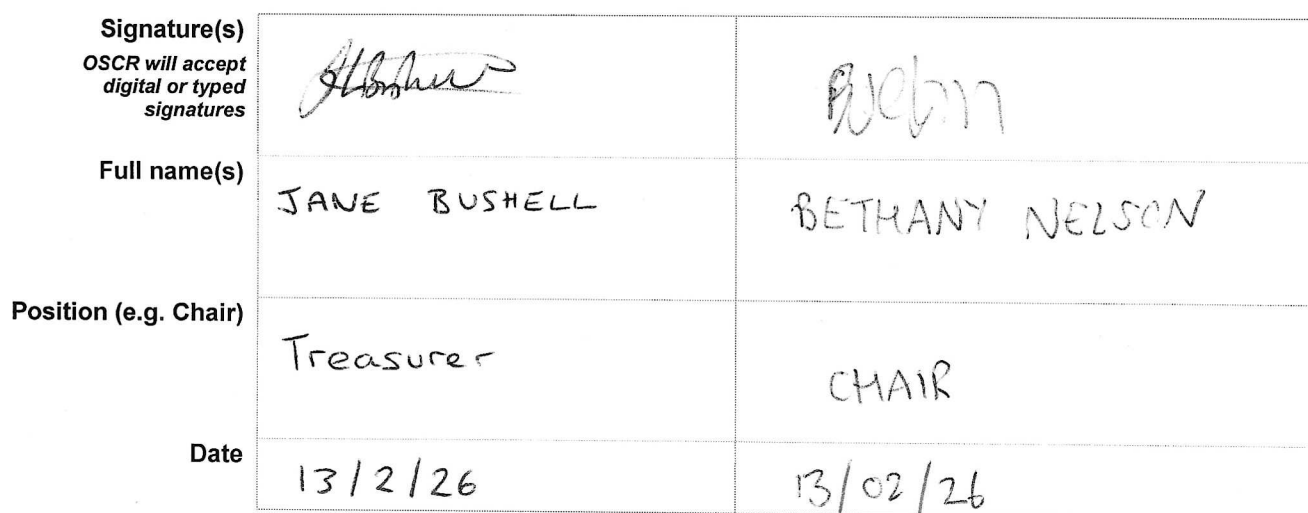 Signature(s)
OSCR will accept
digital or typed
signatures
Full name(s)
JANE BUSHELL
BETHANY NELSON
Position (e.g. Chair)
Treasurer
CHAIR
Date
13/2/26
13/02/26